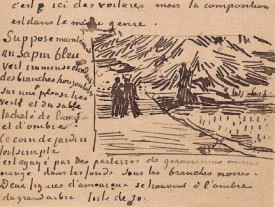 c'est ici des verdures mais la composition
est dans le même genre.
Suppose maintenant
un sapin bleu
vert immense étendant
des branches horizontales
sur une pelouse très
verte et du sable
tacheté de lumière
et d'ombre.
Le coin de jardin
fort simple
est égayé par des parterres de géraniums mine
orange dans les fonds sous les branches noires.
Deux figures d'amoureux se trouvent à l'ombre
du grand arbre toile de 30.